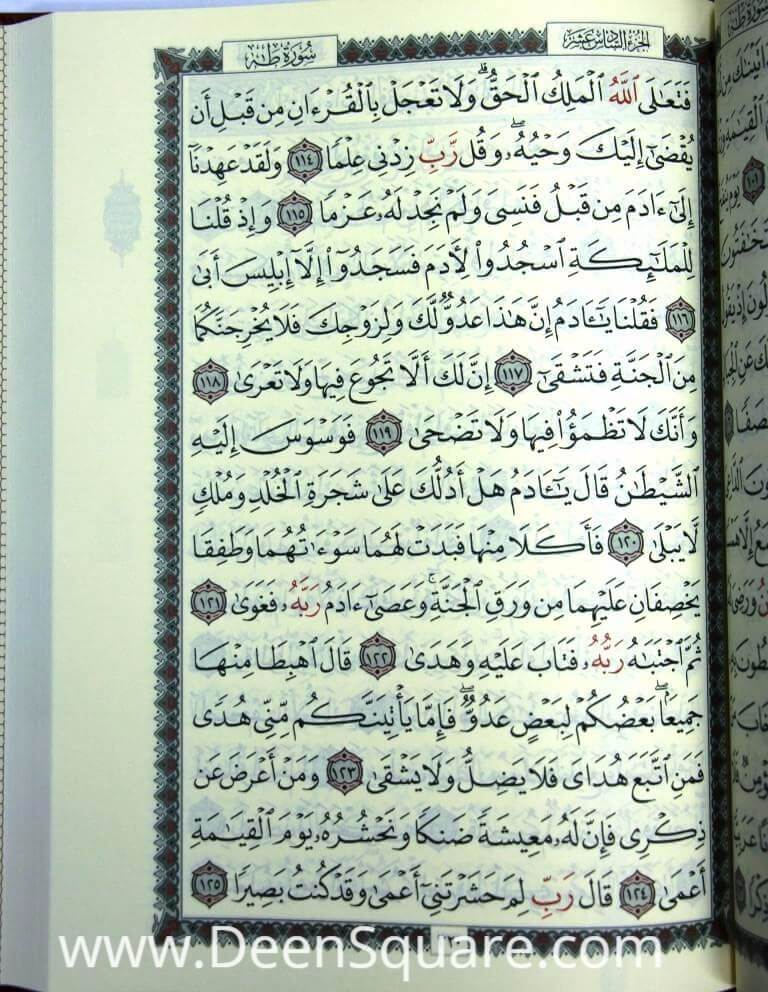 سُورَةُ طه
الجُزْءُ السَّادِسَ عَشَرَ
فَتَعَٰلَى ٱللَّهُ ٱلْمَلِكُ ٱلْحَقُّ ۗ وَلَا تَعْجَلْ بِٱلْقُرْءَانِ مِن قَبْلِ أَن
يُقْضَىٰٓ إِلَيْكَ وَحْيُهُۥ ۖ وَقُل رَّبِّ زِدْنِى عِلْمًا ١١٤ وَلَقَدْ عَهِدْنَآ
إِلَىٰٓ ءَادَمَ مِن قَبْلُ فَنَسِىَ وَلَمْ نَجِدْ لَهُۥ عَزْمًا ١١٥ وَإِذْ قُلْنَا
لِلْمَلَٰٓئِكَةِ ٱسْجُدُوا۟ لِأَدَمَ فَسَجَدُوٓا۟ إِلَّآ إِبْلِيسَ أَبَىٰ
١١٦ فَقُلْنَا يَٰٓـَٔادَمُ إِنَّ هَٰذَا عَدُوٌّ لَّكَ وَلِزَوْجِكَ فَلَا يُخْرِجَنَّكُمَا
مِنَ ٱلْجَنَّةِ فَتَشْقَىٰٓ ١١٧ إِنَّ لَكَ أَلَّا تَجُوعَ فِيهَا وَلَا تَعْرَىٰ ١١٨
وَأَنَّكَ لَا تَظْمَؤُا۟ فِيهَا وَلَا تَضْحَىٰ ١١٩ فَوَسْوَسَ إِلَيْهِ
ٱلشَّيْطَٰنُ قَالَ يَٰٓـَٔادَمُ هَلْ أَدُلُّكَ عَلَىٰ شَجَرَةِ ٱلْخُلْدِ وَمُلْكٍ
لَّا يَبْلَىٰ ١٢٠ فَأَكَلَا مِنْهَا فَبَدَتْ لَهُمَا سَوْءَٰتُهُمَا وَطَفِقَا
يَخْصِفَانِ عَلَيْهِمَا مِن وَرَقِ ٱلْجَنَّةِ ۚ وَعَصَىٰٓ ءَادَمُ رَبَّهُۥ فَغَوَىٰ ١٢١
ثُمَّ ٱجْتَبَٰهُ رَبُّهُۥ فَتَابَ عَلَيْهِ وَهَدَىٰ ١٢٢ قَالَ ٱهْبِطَا مِنْهَا
جَمِيعًۢا ۖ بَعْضُكُمْ لِبَعْضٍ عَدُوٌّ ۖ فَإِمَّا يَأْتِيَنَّكُم مِّنِّى هُدًى
فَمَنِ ٱتَّبَعَ هُدَاىَ فَلَا يَضِلُّ وَلَا يَشْقَىٰ ١٢٣ وَمَنْ أَعْرَضَ عَن
ذِكْرِى فَإِنَّ لَهُۥ مَعِيشَةً ضَنكًا وَنَحْشُرُهُۥ يَوْمَ ٱلْقِيَٰمَةِ
أَعْمَىٰ ١٢٤ قَالَ رَبِّ لِمَ حَشَرْتَنِىٓ أَعْمَىٰ وَقَدْ كُنتُ بَصِيرًا ١٢٥
www.DeenSquare.com